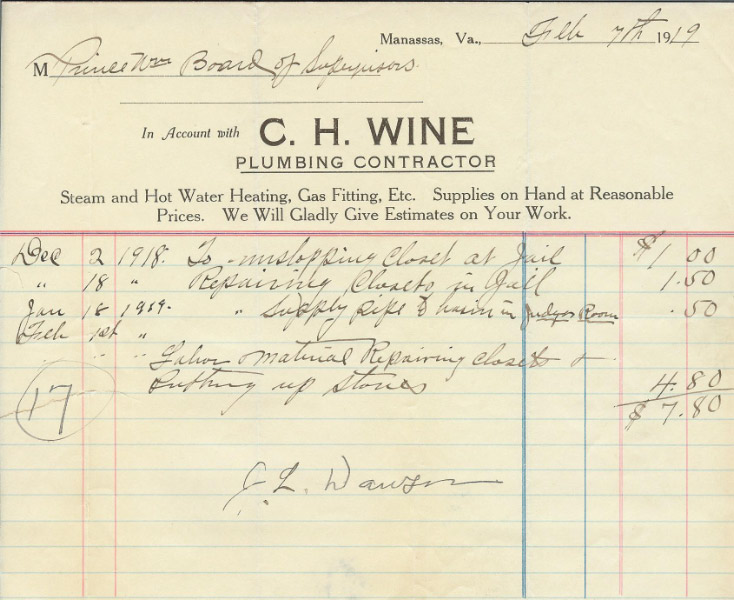 Manassas, Va., Feb 7th 1919
M Prince Wm Board of Supervisors
In Account with C. H. WINE
PLUMBING CONTRACTOR
Steam and Hot Water Heating, Gas Fitting, Etc. Supplies on Hand at Reasonable
Prices. We Will Gladly Give Estimates on Your Work.
Dec 2 1918. To unstopping Closet at Jail $1 00
" 18 " Repairing Closets in Jail 1.50
Jan 18 1919. " Supply pipe to basin in Judges Room .50
Feb 1st "
" " " Labor & material Repairing closets &
Putting up stoves 4.80
17 $7.80
J L. Dawson